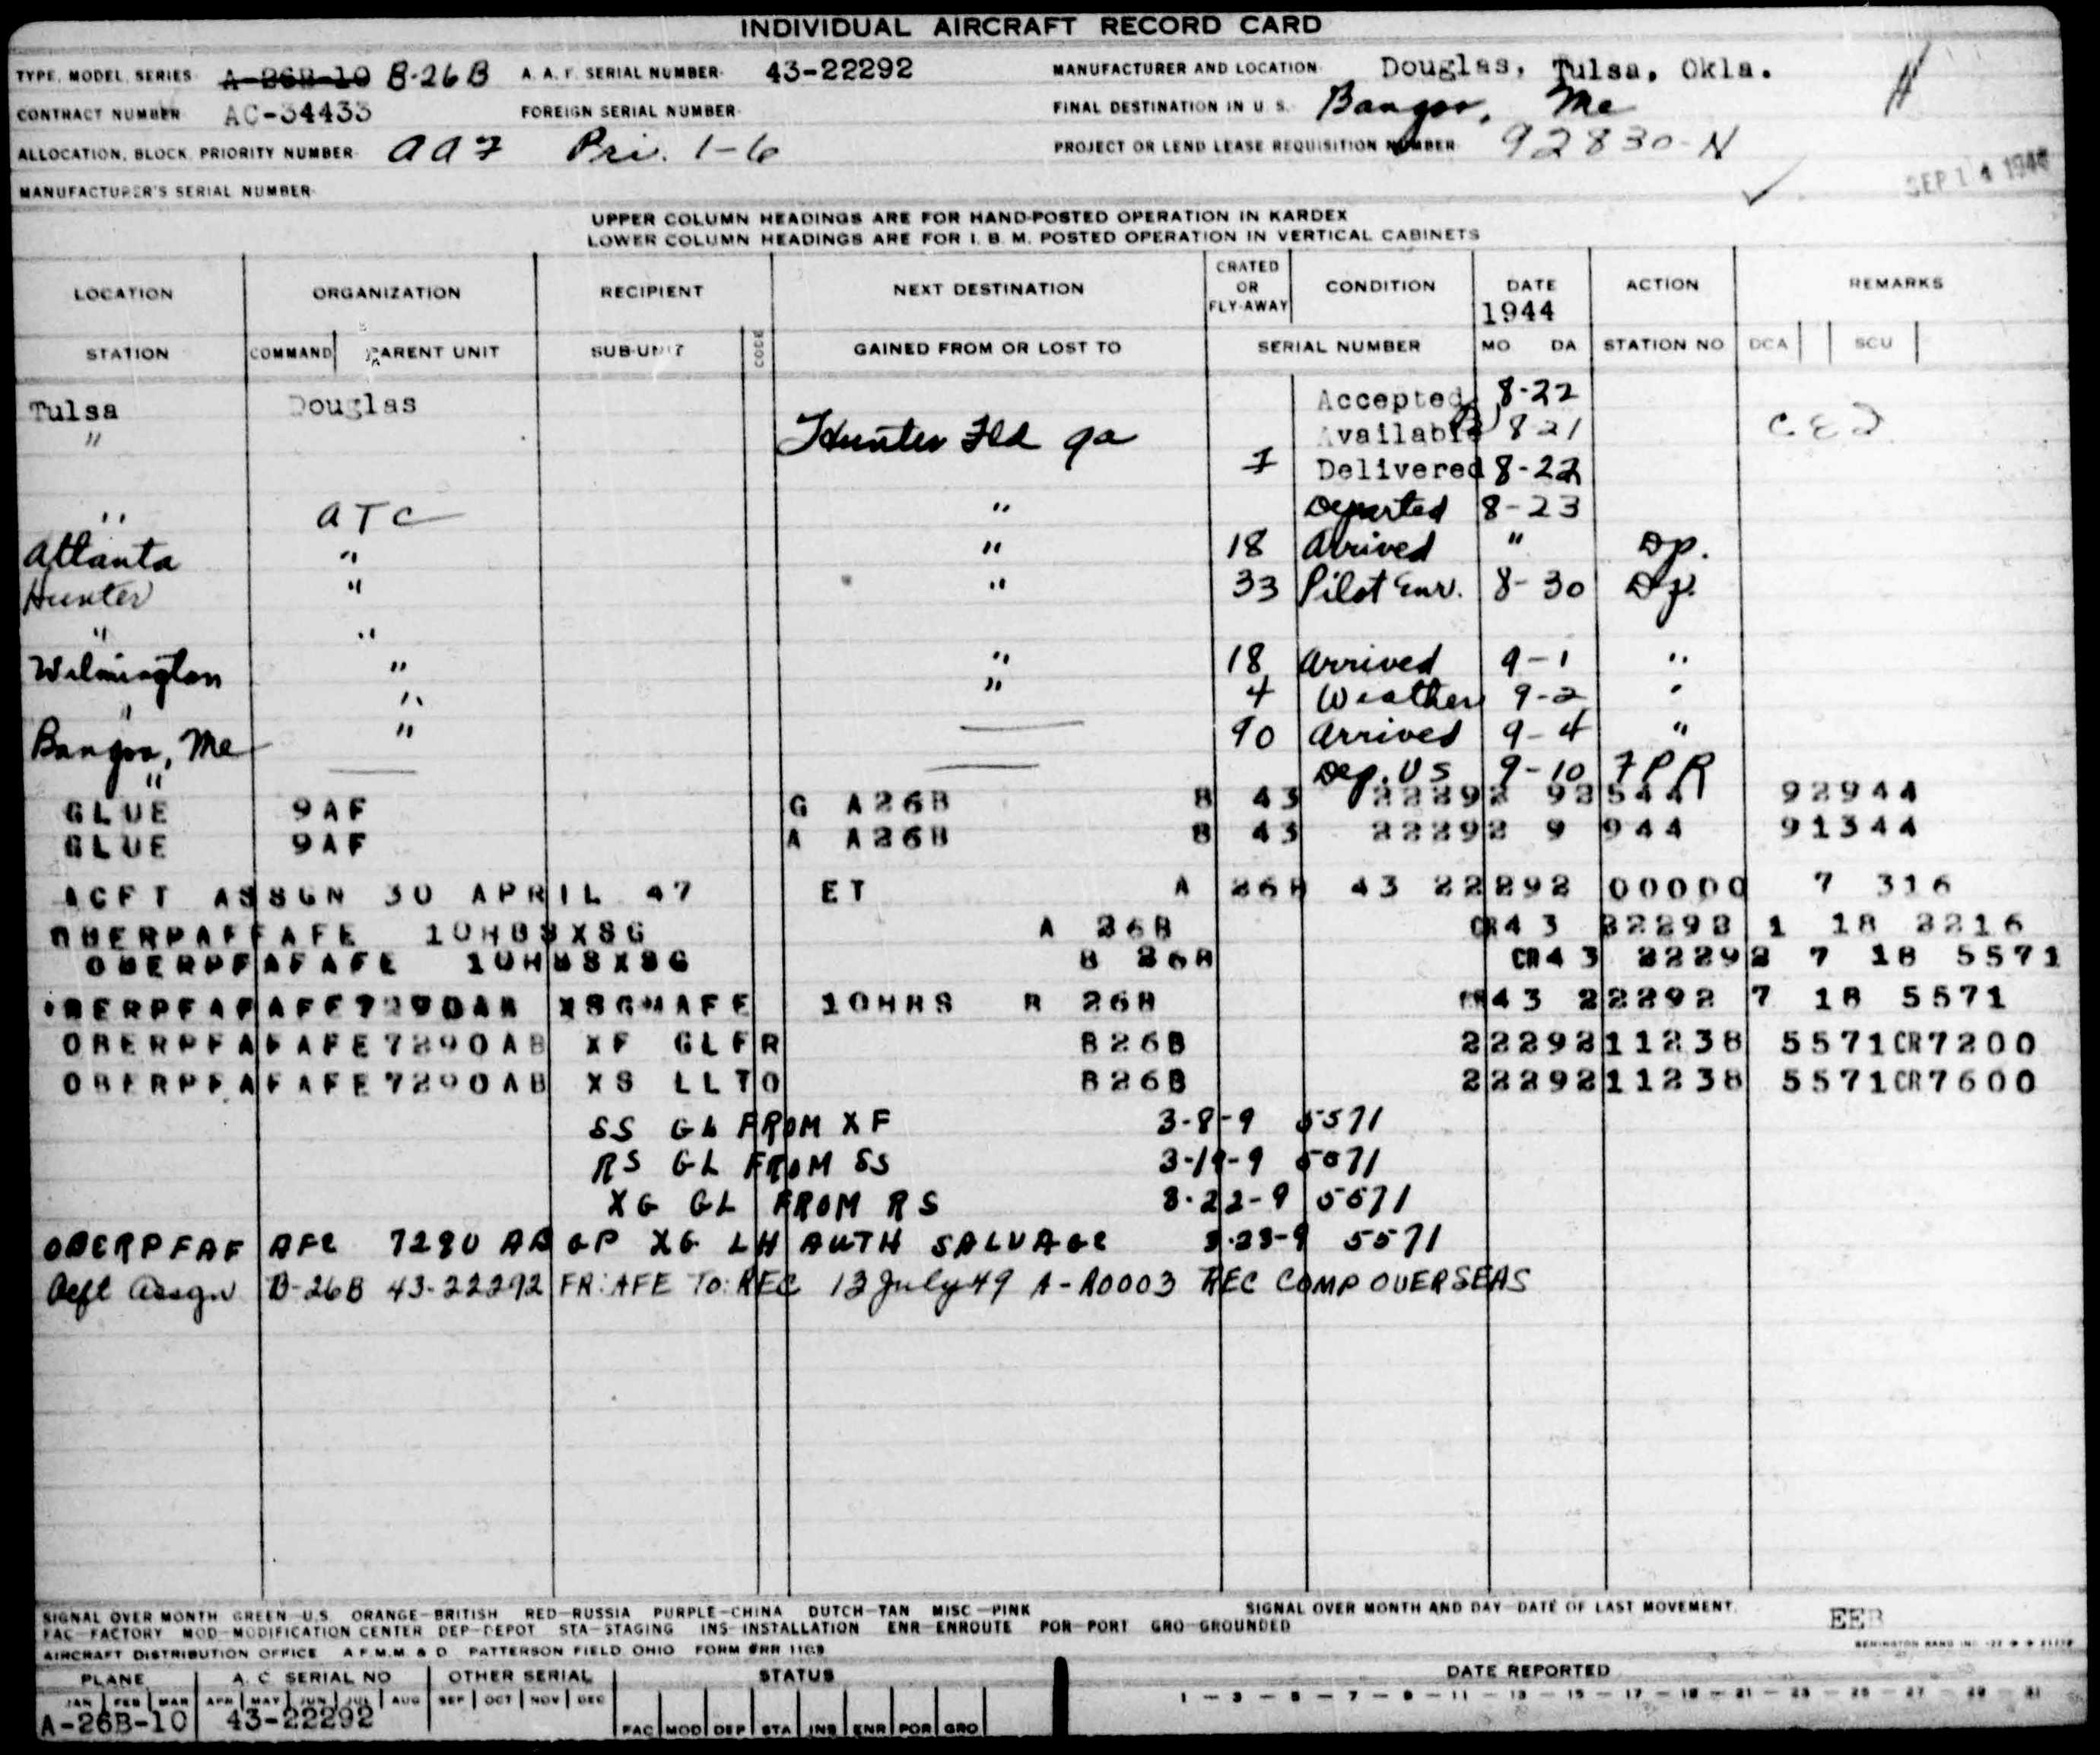 INDIVIDUAL AIRCRAFT RECORD CARD
TYPE, MODEL, SERIES A-26B-10 B-26B A. A. F. SERIAL NUMBER 43-22292 MANUFACTURER AND LOCATION Douglas, Tulsa, Okla.
CONTRACT NUMBER AC-34433 FOREIGN SERIAL NUMBER FINAL DESTINATION IN U. S. Bangor, Me
ALLOCATION, BLOCK, PRIORITY NUMBER aa7 Pri. 1-6 PROJECT OR LEND LEASE REQUISITION NUMBER 92830-N
MANUFACTURER'S SERIAL NUMBER SEP 14 1944
UPPER COLUMN HEADINGS ARE FOR HAND-POSTED OPERATION IN KARDEX
LOWER COLUMN HEADINGS ARE FOR I. B. M. POSTED OPERATION IN VERTICAL CABINETS
LOCATION ORGANIZATION RECIPIENT NEXT DESTINATION CRATED OR FLY-AWAY CONDITION DATE 1944 ACTION REMARKS
STATION COMMAND PARENT UNIT SUB-UNIT CODE GAINED FROM OR LOST TO SERIAL NUMBER MO DA STATION NO DCA SCU
Tulsa Douglas Accepted 8-22
" Hunter Fld Ga Available 8 21
Delivered 8-22
" ATC " Departed 8-23
Atlanta " " 18 Arrived " Dp.
Hunter " " 33 Pilot Enr. 8-30 Dp.
" "
Wilmington " " 18 Arrived 9-1 "
" " " 4 Weather 9-2 "
Bangor, Me " 90 Arrived 9-4 "
" Dep. US 9-10 FPR
GLUE 9AF G A26B B 43 22292 92544 92944
GLUE 9AF A A26B B 43 22292 9 944 91344
ACFT ASSGN 30 APRIL 47 ET A 26B 43 22292 00000 7 316
OBERPAFFAFE 10HBSXSG A 26B CR43 22292 1 18 2216
OBERPFAFAFE 10HBSXSG B 26B CR43 22292 7 18 5571
OBERPFAFAFE7290AB XSGMAFE 10HBS B 26B CR43 22292 7 18 5571
OBERPFAFAFE7290AB XF GLFR B26B 2229211238 5571CR7200
OBERPFAFAFE7290AB XS LLTO B26B 2229211238 5571CR7600
SS GL FROM XF 3-8-9 5571
RS GL FROM SS 3-19-9 5571
XG GL FROM RS 3-22-9 5571
OBERPFAF AFE 7280 AB GP XG LH AUTH SALVAGE 3-23-9 5571
Acft Assgn B-26B 43-22292 FR: AFE TO: REC 13 July 49 A-A0003 REC COMP OVERSEAS
SIGNAL OVER MONTH GREEN—U.S. ORANGE—BRITISH RED—RUSSIA PURPLE—CHINA DUTCH—TAN MISC—PINK SIGNAL OVER MONTH AND DAY—DATE OF LAST MOVEMENT.
FAC—FACTORY MOD—MODIFICATION CENTER DEP—DEPOT STA—STAGING INS—INSTALLATION ENR—ENROUTE POR—PORT GRO—GROUNDED EEB
AIRCRAFT DISTRIBUTION OFFICE A.F.M.M. & D. PATTERSON FIELD OHIO FORM
PLANE A. C. SERIAL NO OTHER SERIAL STATUS DATE REPORTED
JAN FEB MAR APR MAY JUN JUL AUG SEP OCT NOV DEC 1 — 3 — 5 — 7 — 9 — 11 — 13 — 15 — 17 — 19 — 21 — 23 — 25 — 27 — 29 — 31
A-26B-10 43-22292 FAC MOD DEP STA INS ENR POR GRO